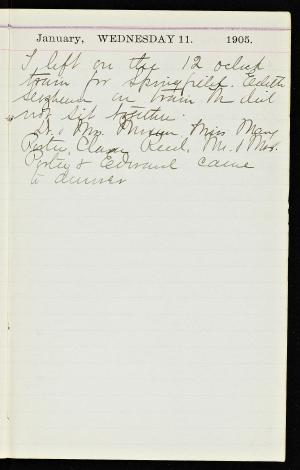 January, WEDNESDAY 11. 1905.
I left on the 12 oclock
train for Springfield. Edith
on train We did
not sit together.
Dr. & Mrs. Miss Mary
Clara Reed, Mr. & Mrs.
& Edward came
to dinner